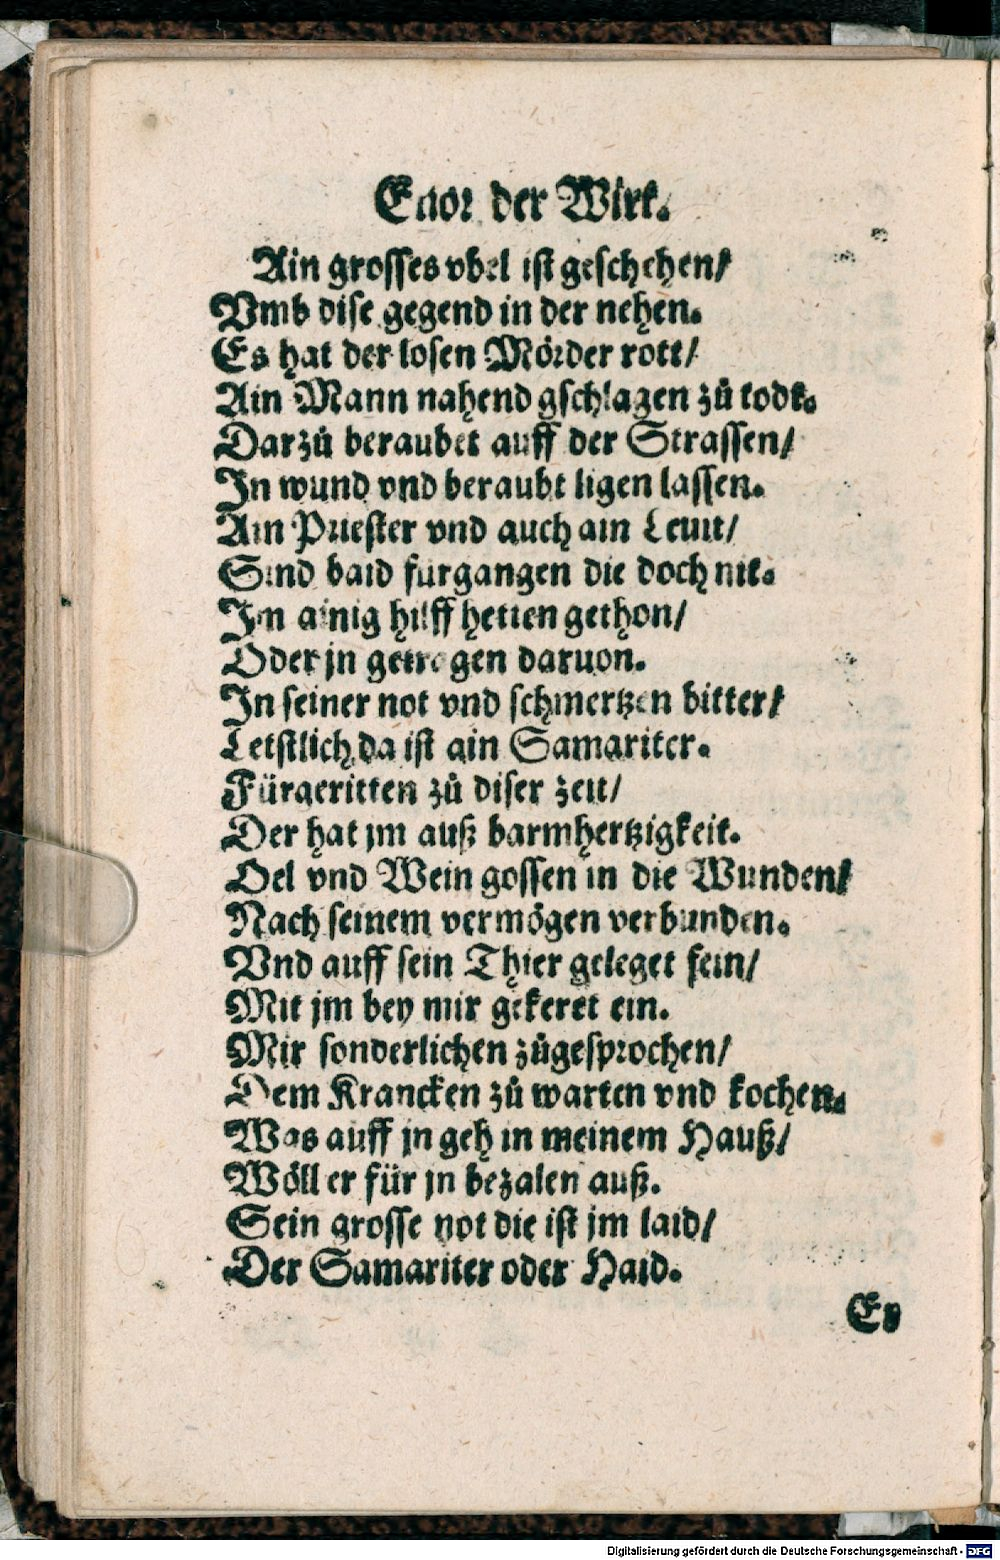 Egor der Wirt.
Ain grosses vbel ist geschehen/
Vmb dise gegend in der nehen.
Es hat der losen Mörder rott/
Ain Mann nahend gschlagen zů todt.
Darzů beraubet auff der Strassen/
In wund vnd beraubt ligen lassen.
Ain Priester vnd auch ain Leuit/
Sind baid fürgangen die doch nit.
Im ainig hilff hetten gethon/
Oder jn getragen daruon.
In seiner not vnd schmertzen bitter/
Letstlich da ist ain Samariter.
Fürgeritten zů diser zeit/
Der hat jm auß barmhertzigkeit.
Oel vnd Wein gossen in die Wunden/
Nach seinem vermögen verbunden.
Vnd auff sein Thier geleget fein/
Mit jm bey mir gekeret ein.
Mir sonderlichen zůgesprochen/
Dem Krancken zů warten vnd kochen.
Was auff jn geh in meinem Hauß/
Wöll er für jn bezalen auß.
Sein grosse not die ist jm laid/
Der Samariter oder Haid.
Es
Digitalisierung gefördert durch die Deutsche Forschungsgemeinschaft - DFG